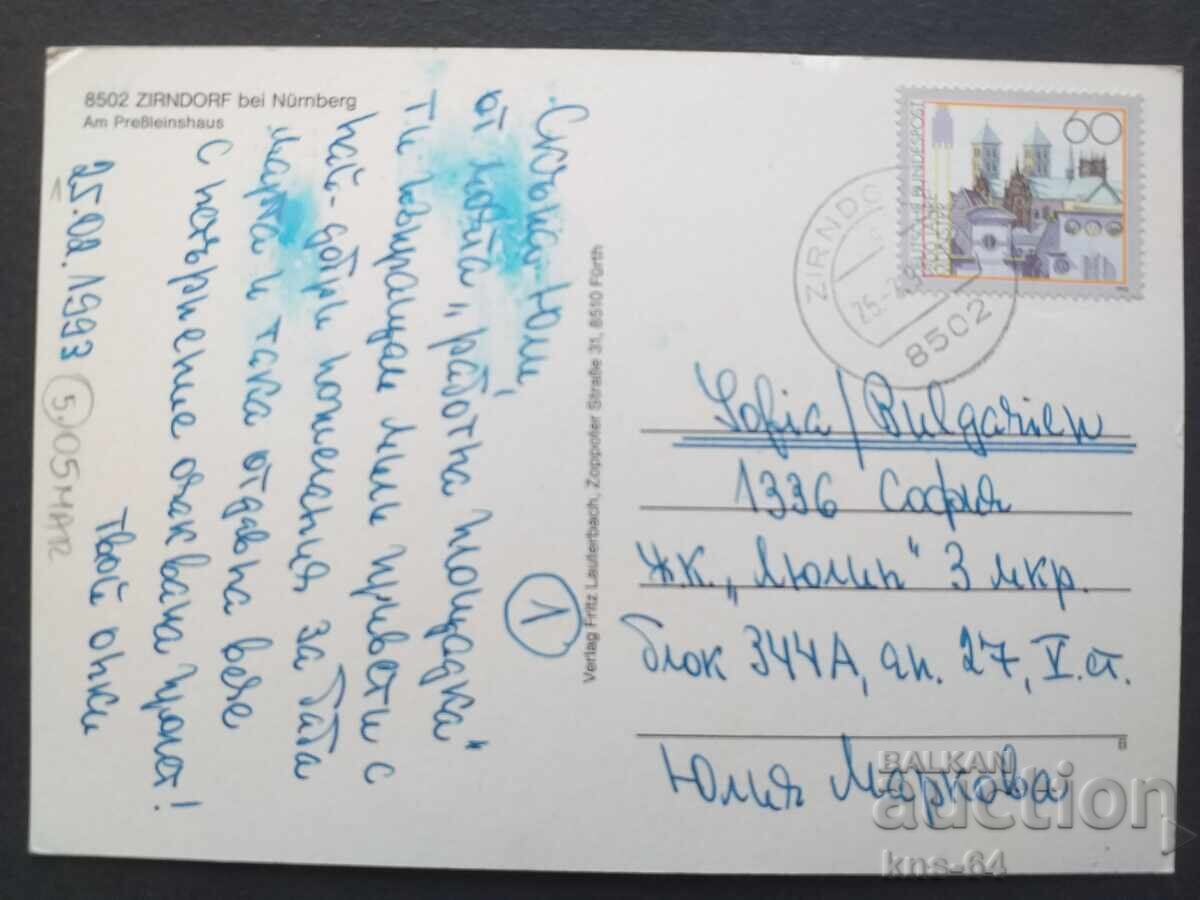 8502 ZIRNDORF bei Nürnberg
Am Preßleinshaus
Скъпа Юли,
от моята „работна площадка"
ти изпращам мили привети с
най-добри пожелания за баба
марта и така отдавна вече
с нетърпение очаквана пролет!
твой
25.02.1993
5.05МАРТ
1
Verlag Fritz Lauterbach, Zoppoter Straße 31, 8510 Fürth
60
DEUTSCHE BUNDESPOST
ZIRNDO
8502
Sofia/Bulgarien
1336 София
жк. „Люлин" 3 мкр.
блок 344А, ап. 27, V. ет.
Юлия Маркова
B
BALKAN
auction
kns-64